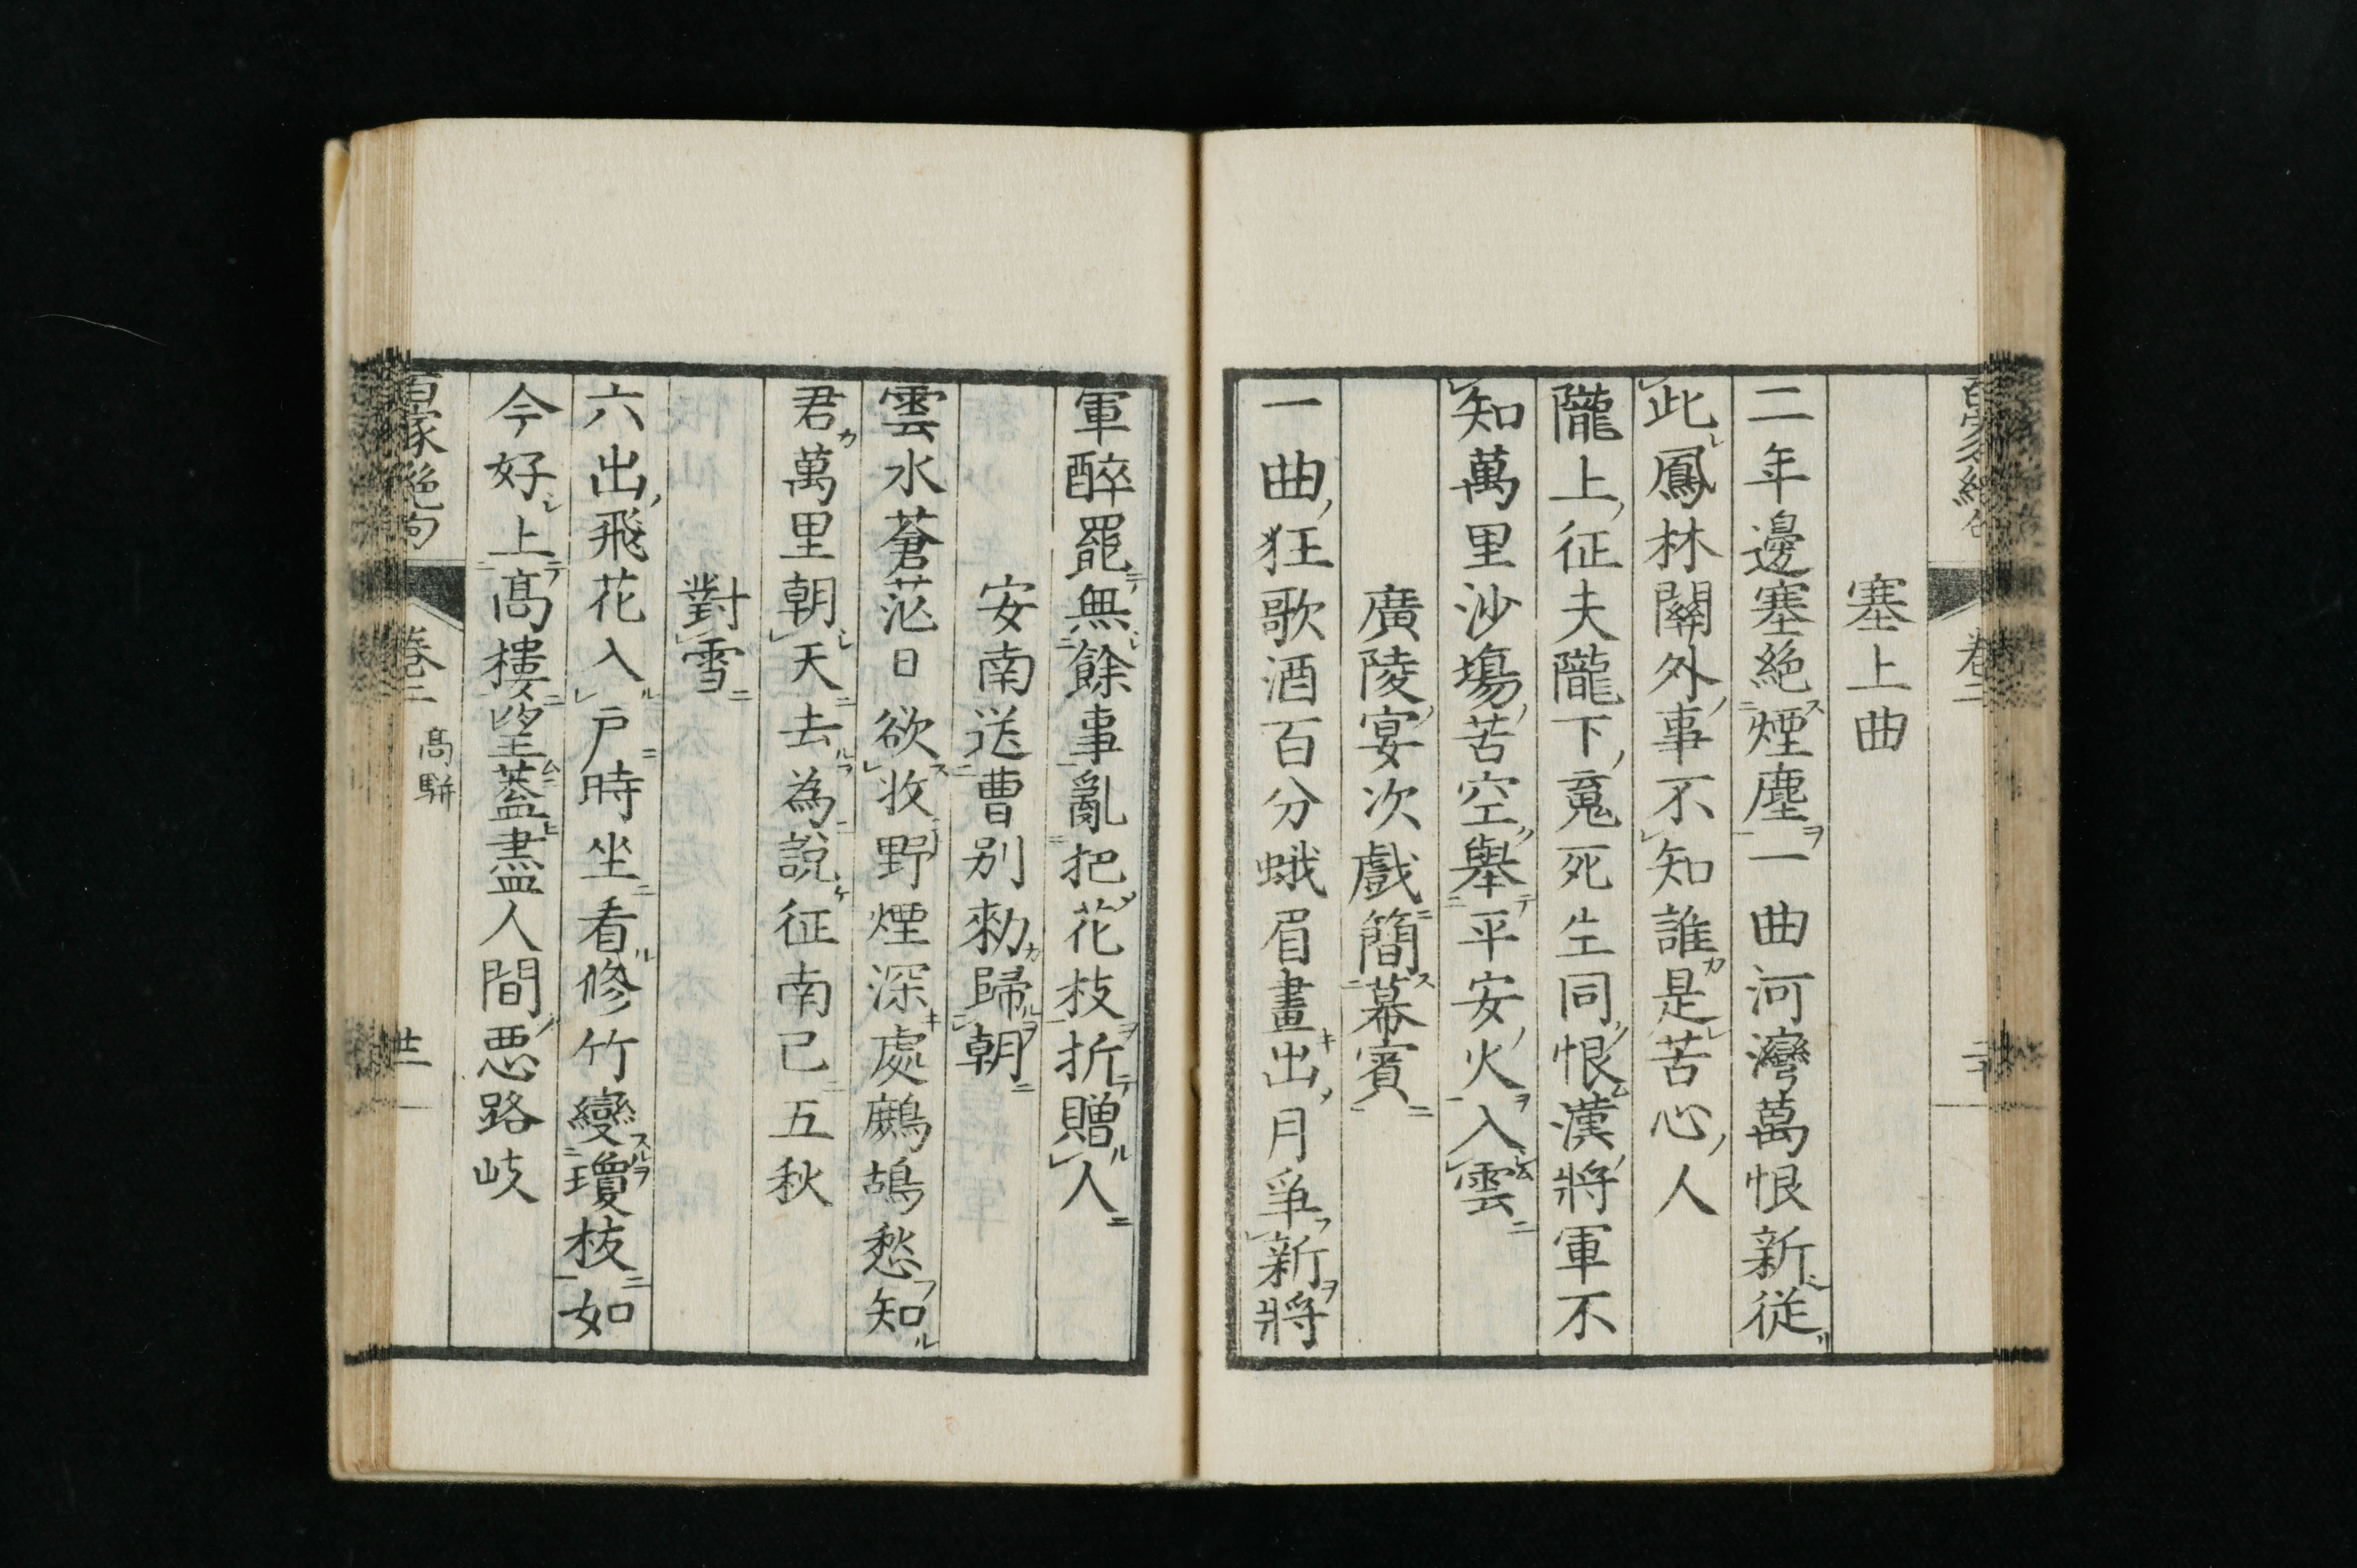 塞上曲
二年邊塞絕煙塵一曲河灣萬恨新從
此鳳林關外事不知誰是苦心人
隴上征夫隴下䰟死生同恨漢將軍不
知萬里沙塲苦空舉平安火入雲
廣陵宴次戲簡幕賓
一曲狂歌酒百分蛾眉畫出月爭新將
軍醉罷無餘事亂把花枝折贈人
安南送曹別勑歸朝
雲水蒼茫日欲收野煙深處鷓鴣愁知
君萬里朝天去為說征南已五秋
對雪
六出飛花入戶時坐看修竹變瓊枝如
今好上髙樓望蓋盡人間惡路岐
百家絕句 卷二 髙駢 廿一